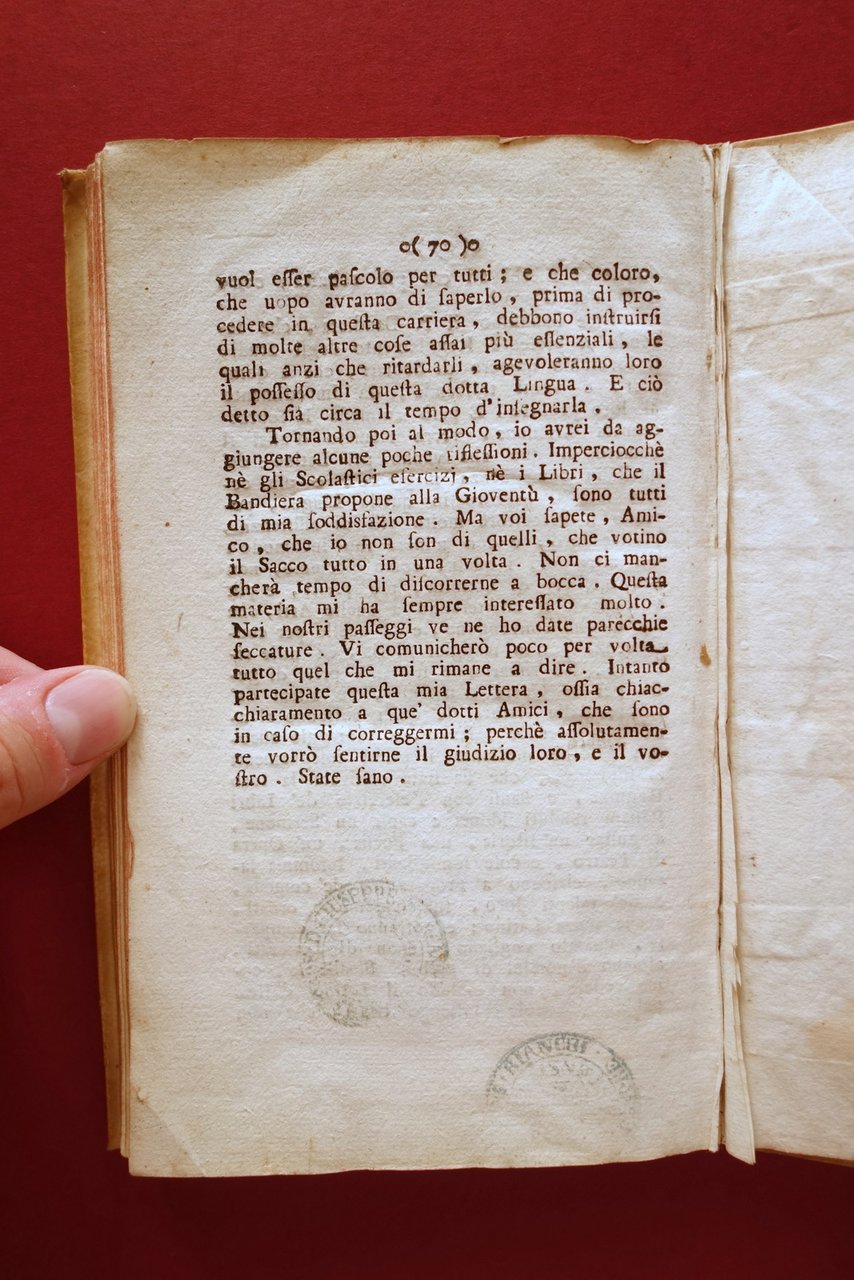 o( 70 )o
vuol eſſer paſcolo per tutti ; e che coloro,
che uopo avranno di ſaperlo , prima di pro-
cedere in queſta carriera , debbono inſtruirſi
di molte altre coſe aſſai più eſſenziali , le
quali anzi che ritardarli , agevoleranno loro
il poſſeſſo di queſta dotta Lingua . E ciò
detto ſia circa il tempo d'inſegnarla .
Tornando poi al modo , io avrei da ag-
giungere alcune poche rifleſſioni . Imperciocchè
nè gli Scolaſtici eſercizj , nè i Libri , che il
Bandiera propone alla Gioventù , ſono tutti
di mia ſoddisfazione . Ma voi ſapete , Ami-
co , che io non ſon di quelli , che votino
il Sacco tutto in una volta . Non ci man-
cherà tempo di diſcorrerne a bocca . Queſta
materia mi ha ſempre intereſſato molto .
Nei noſtri paſſeggi ve ne ho date parecchie
ſeccature . Vi comunicherò poco per volta
tutto quel che mi rimane a dire . Intanto
partecipate queſta mia Lettera , oſſia chiac-
chiaramento a que' dotti Amici , che ſono
in caſo di correggermi ; perchè aſſolutamen-
te vorrò ſentirne il giudizio loro , e il vo-
ſtro . State ſano .
BIANCHI